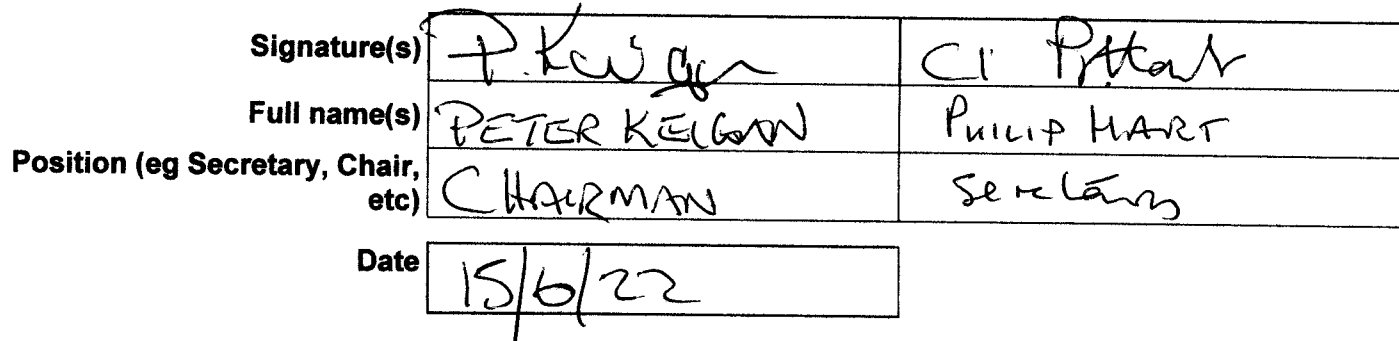 Signature(s) P.
Full name(s) PETER PHILIP HART
Position (eg Secretary, Chair, etc) CHAIRMAN Secretary
Date 15/6/22